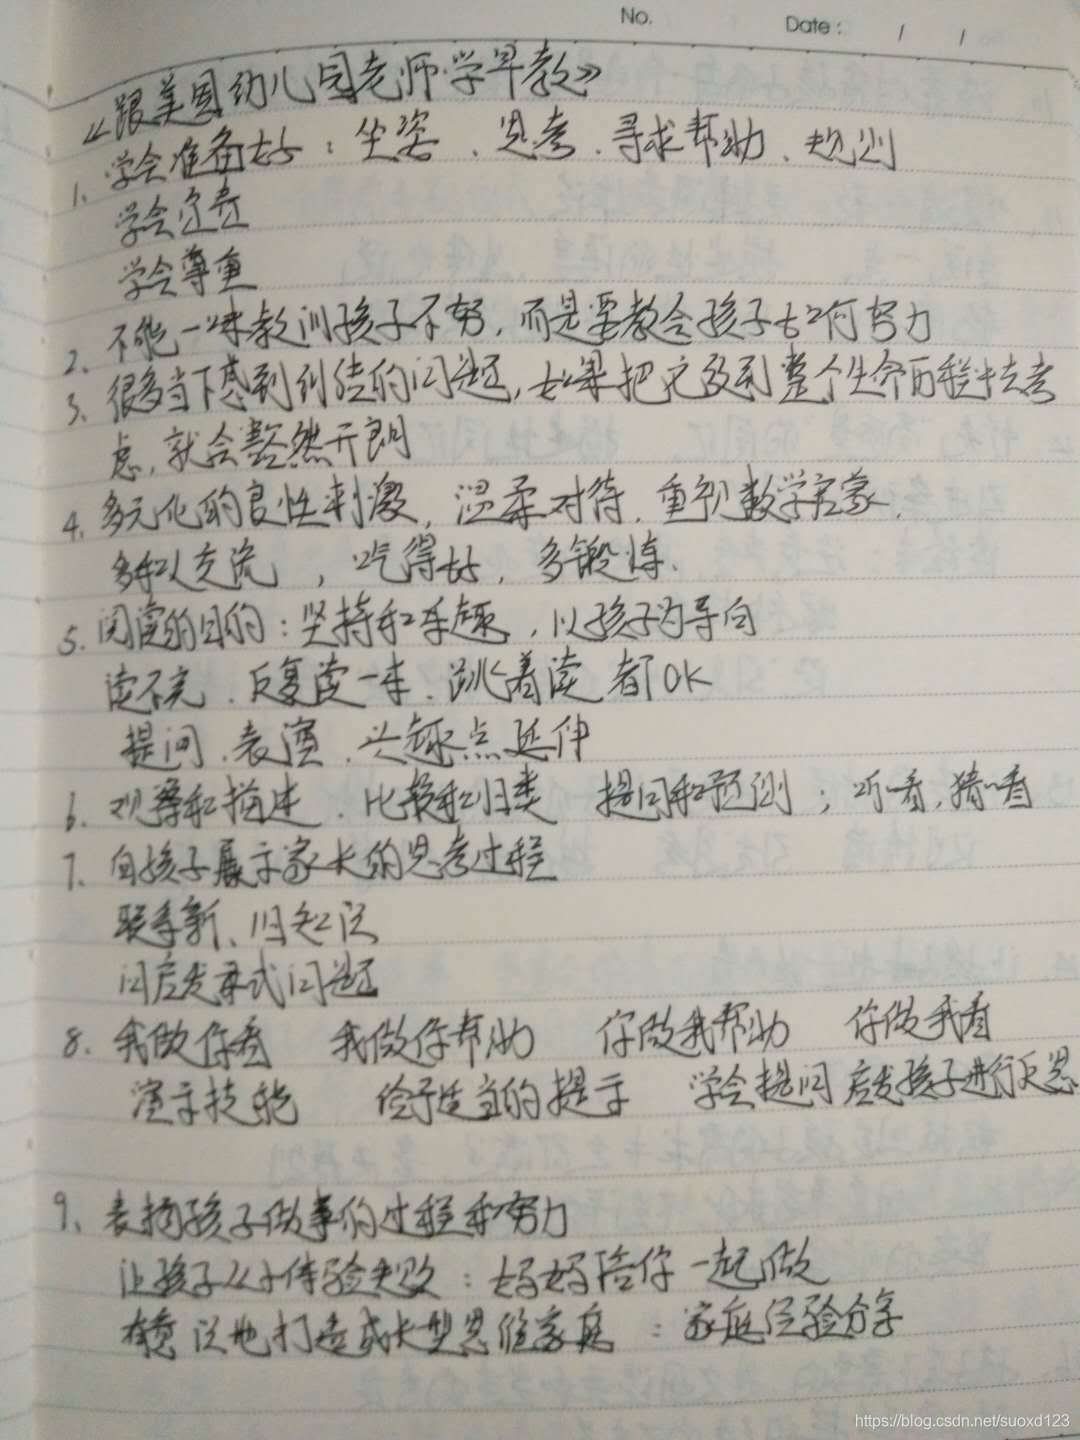 No.
Date: / /
《跟美国幼儿园老师学早教》
1. 学会准备好：坐姿、思考、寻求帮助、规则
学会负责
学会尊重
2. 不能一味教训孩子不努，而是要教会孩子如何努力
3. 很多当下感到纠结的问题，如果把它放到整个生命历程中去考
虑，就会豁然开朗
4. 多元化的良性刺激，温柔对待，重视数学启蒙，
多和人交流，吃得好，多锻炼、
5. 阅读的目的：坚持和乐趣，以孩子为导向
读不完、反复读一本、跳着读 都OK
提问、表演、兴趣点延伸
6. 观察和描述、比较和归类 提问和预测；听一看，猜一看
7. 向孩子展示家长的思考过程
联系新、旧知识
问启发式问题
8. 我做你看 我做你帮助 你做我帮助 你做我看
演示技能 给予适当的提示 学会提问 启发孩子进行反思
9、表扬孩子做事的过程和努力
让孩子从小体验失败：妈妈陪你一起做
有意识地打造成长型思维家庭：家庭经验分享
https://blog.csdn.net/suoxd123